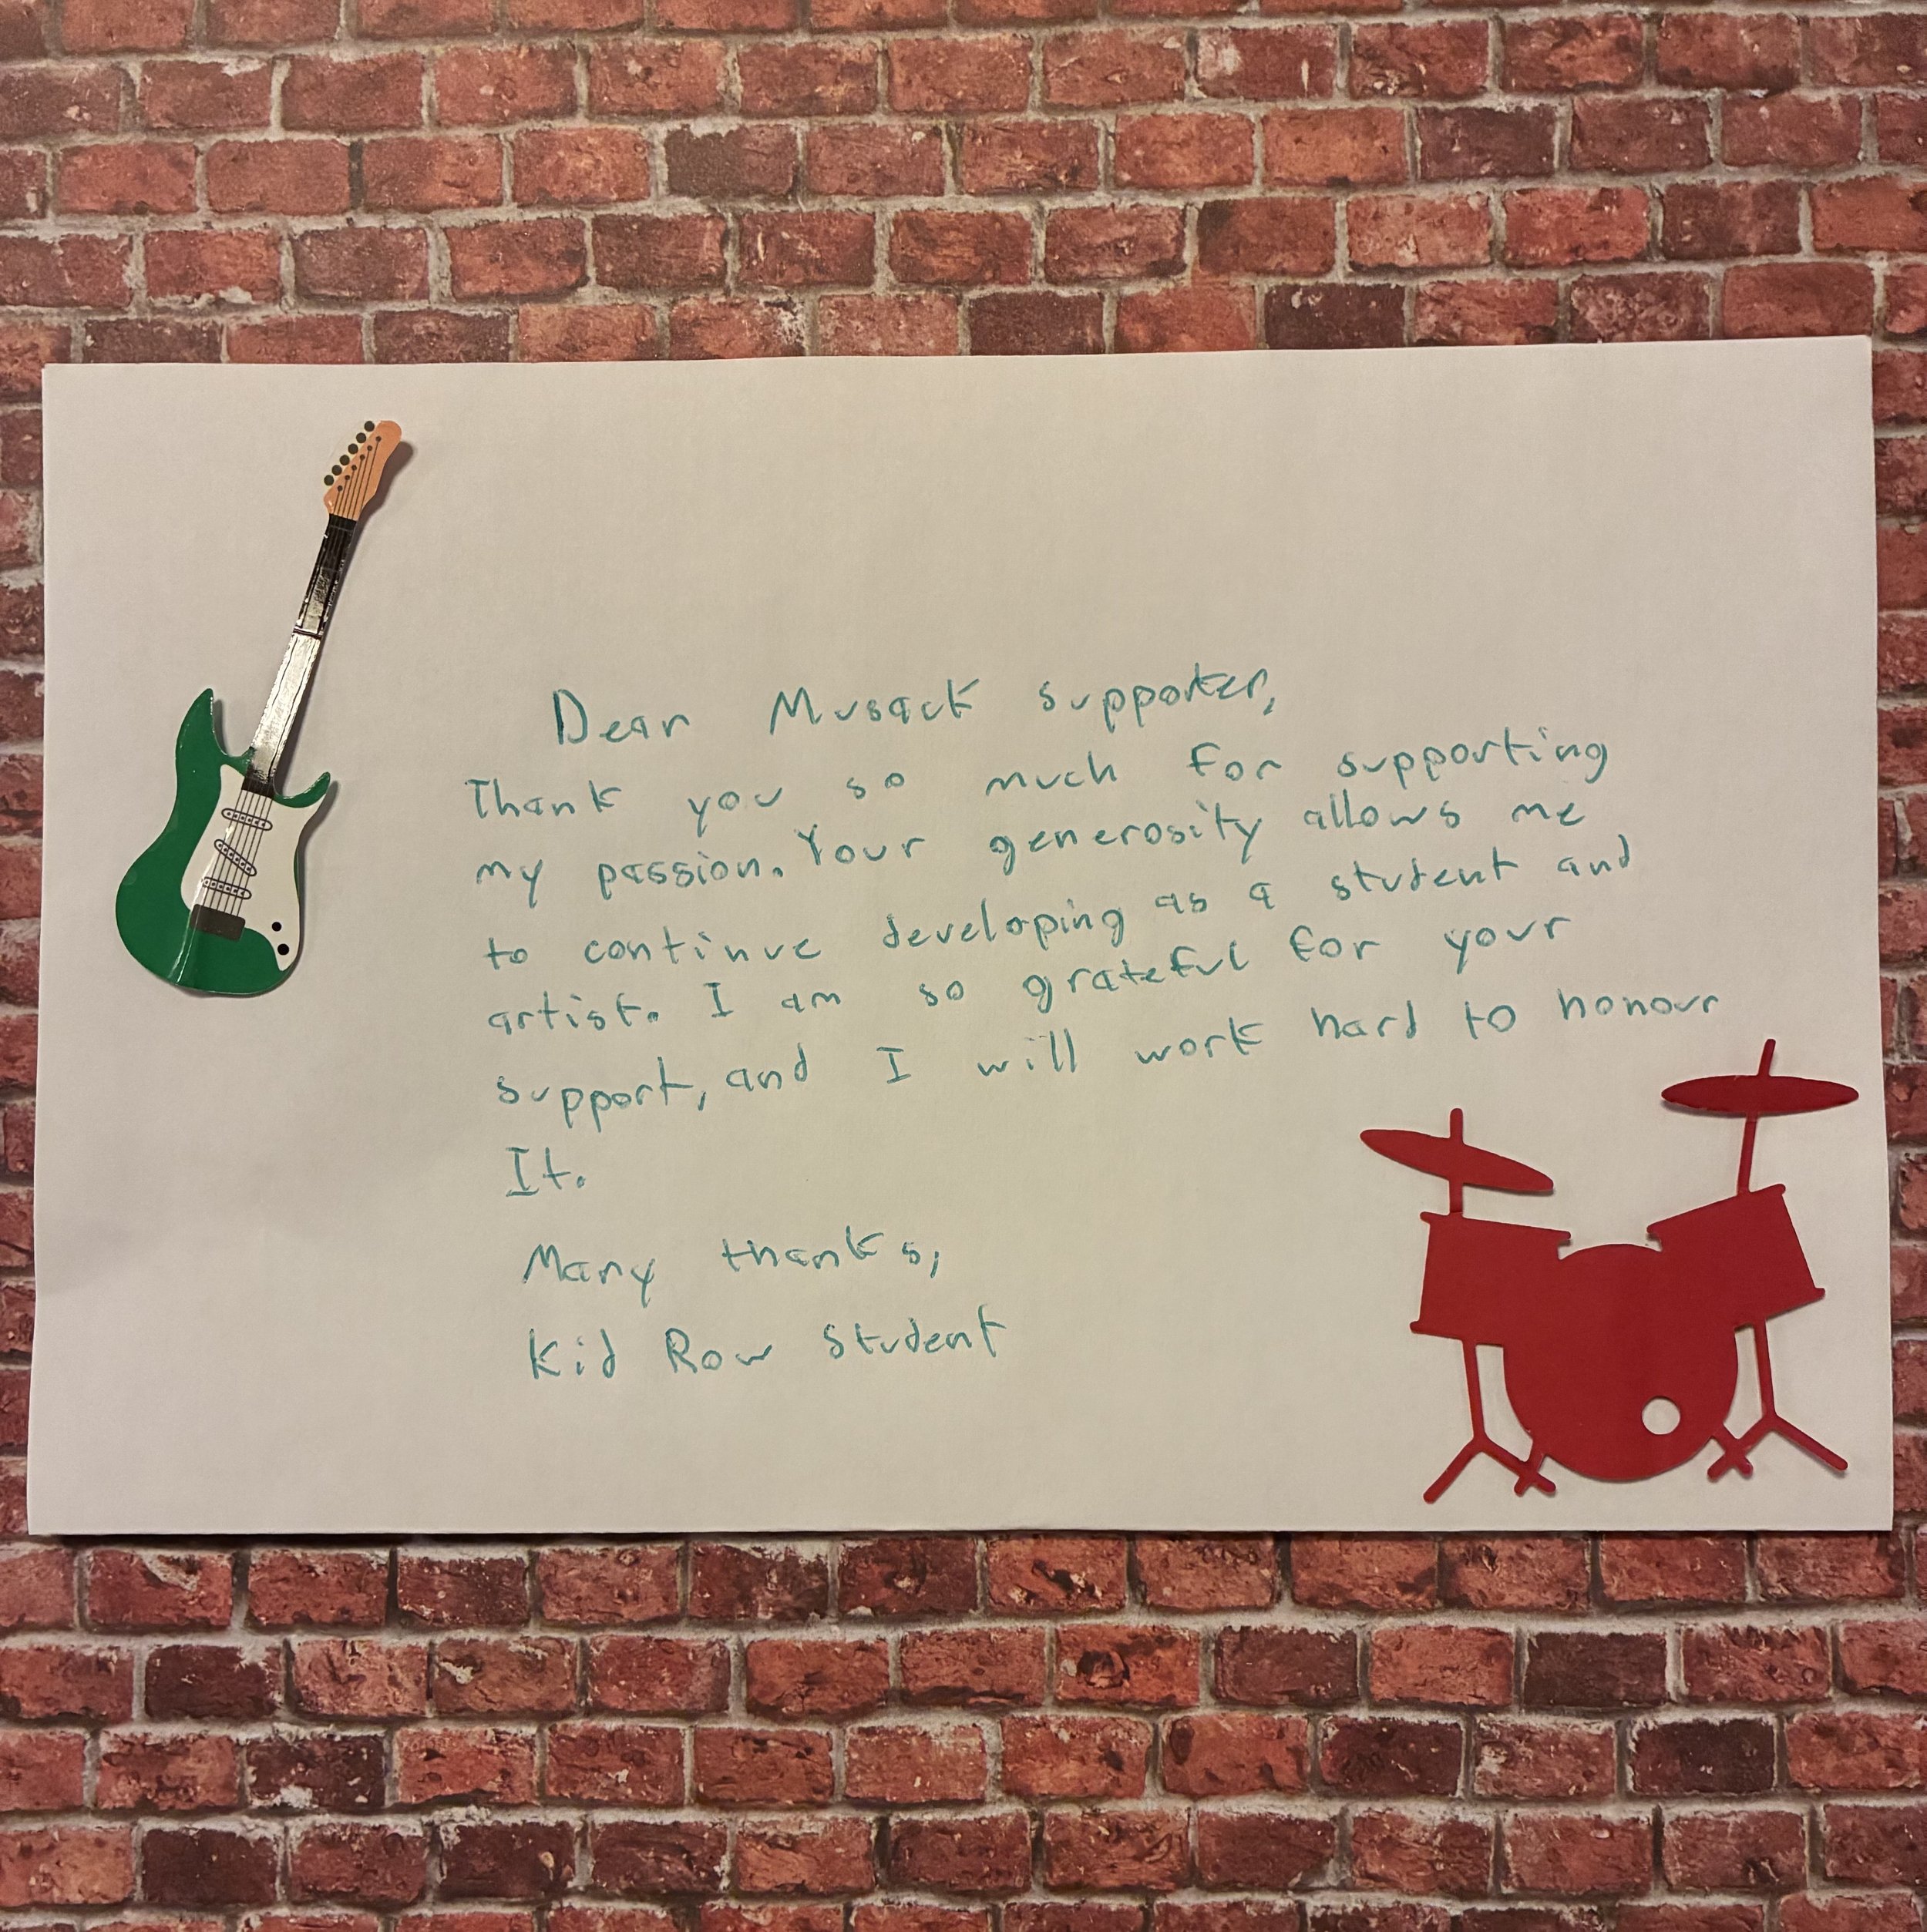 Dear Musack supporter,
Thank you so much for supporting
my passion. Your generosity allows me
to continue developing as a student and
artist. I am so grateful for your
support, and I will work hard to honour
It.
Many thanks,
Kid Row Student